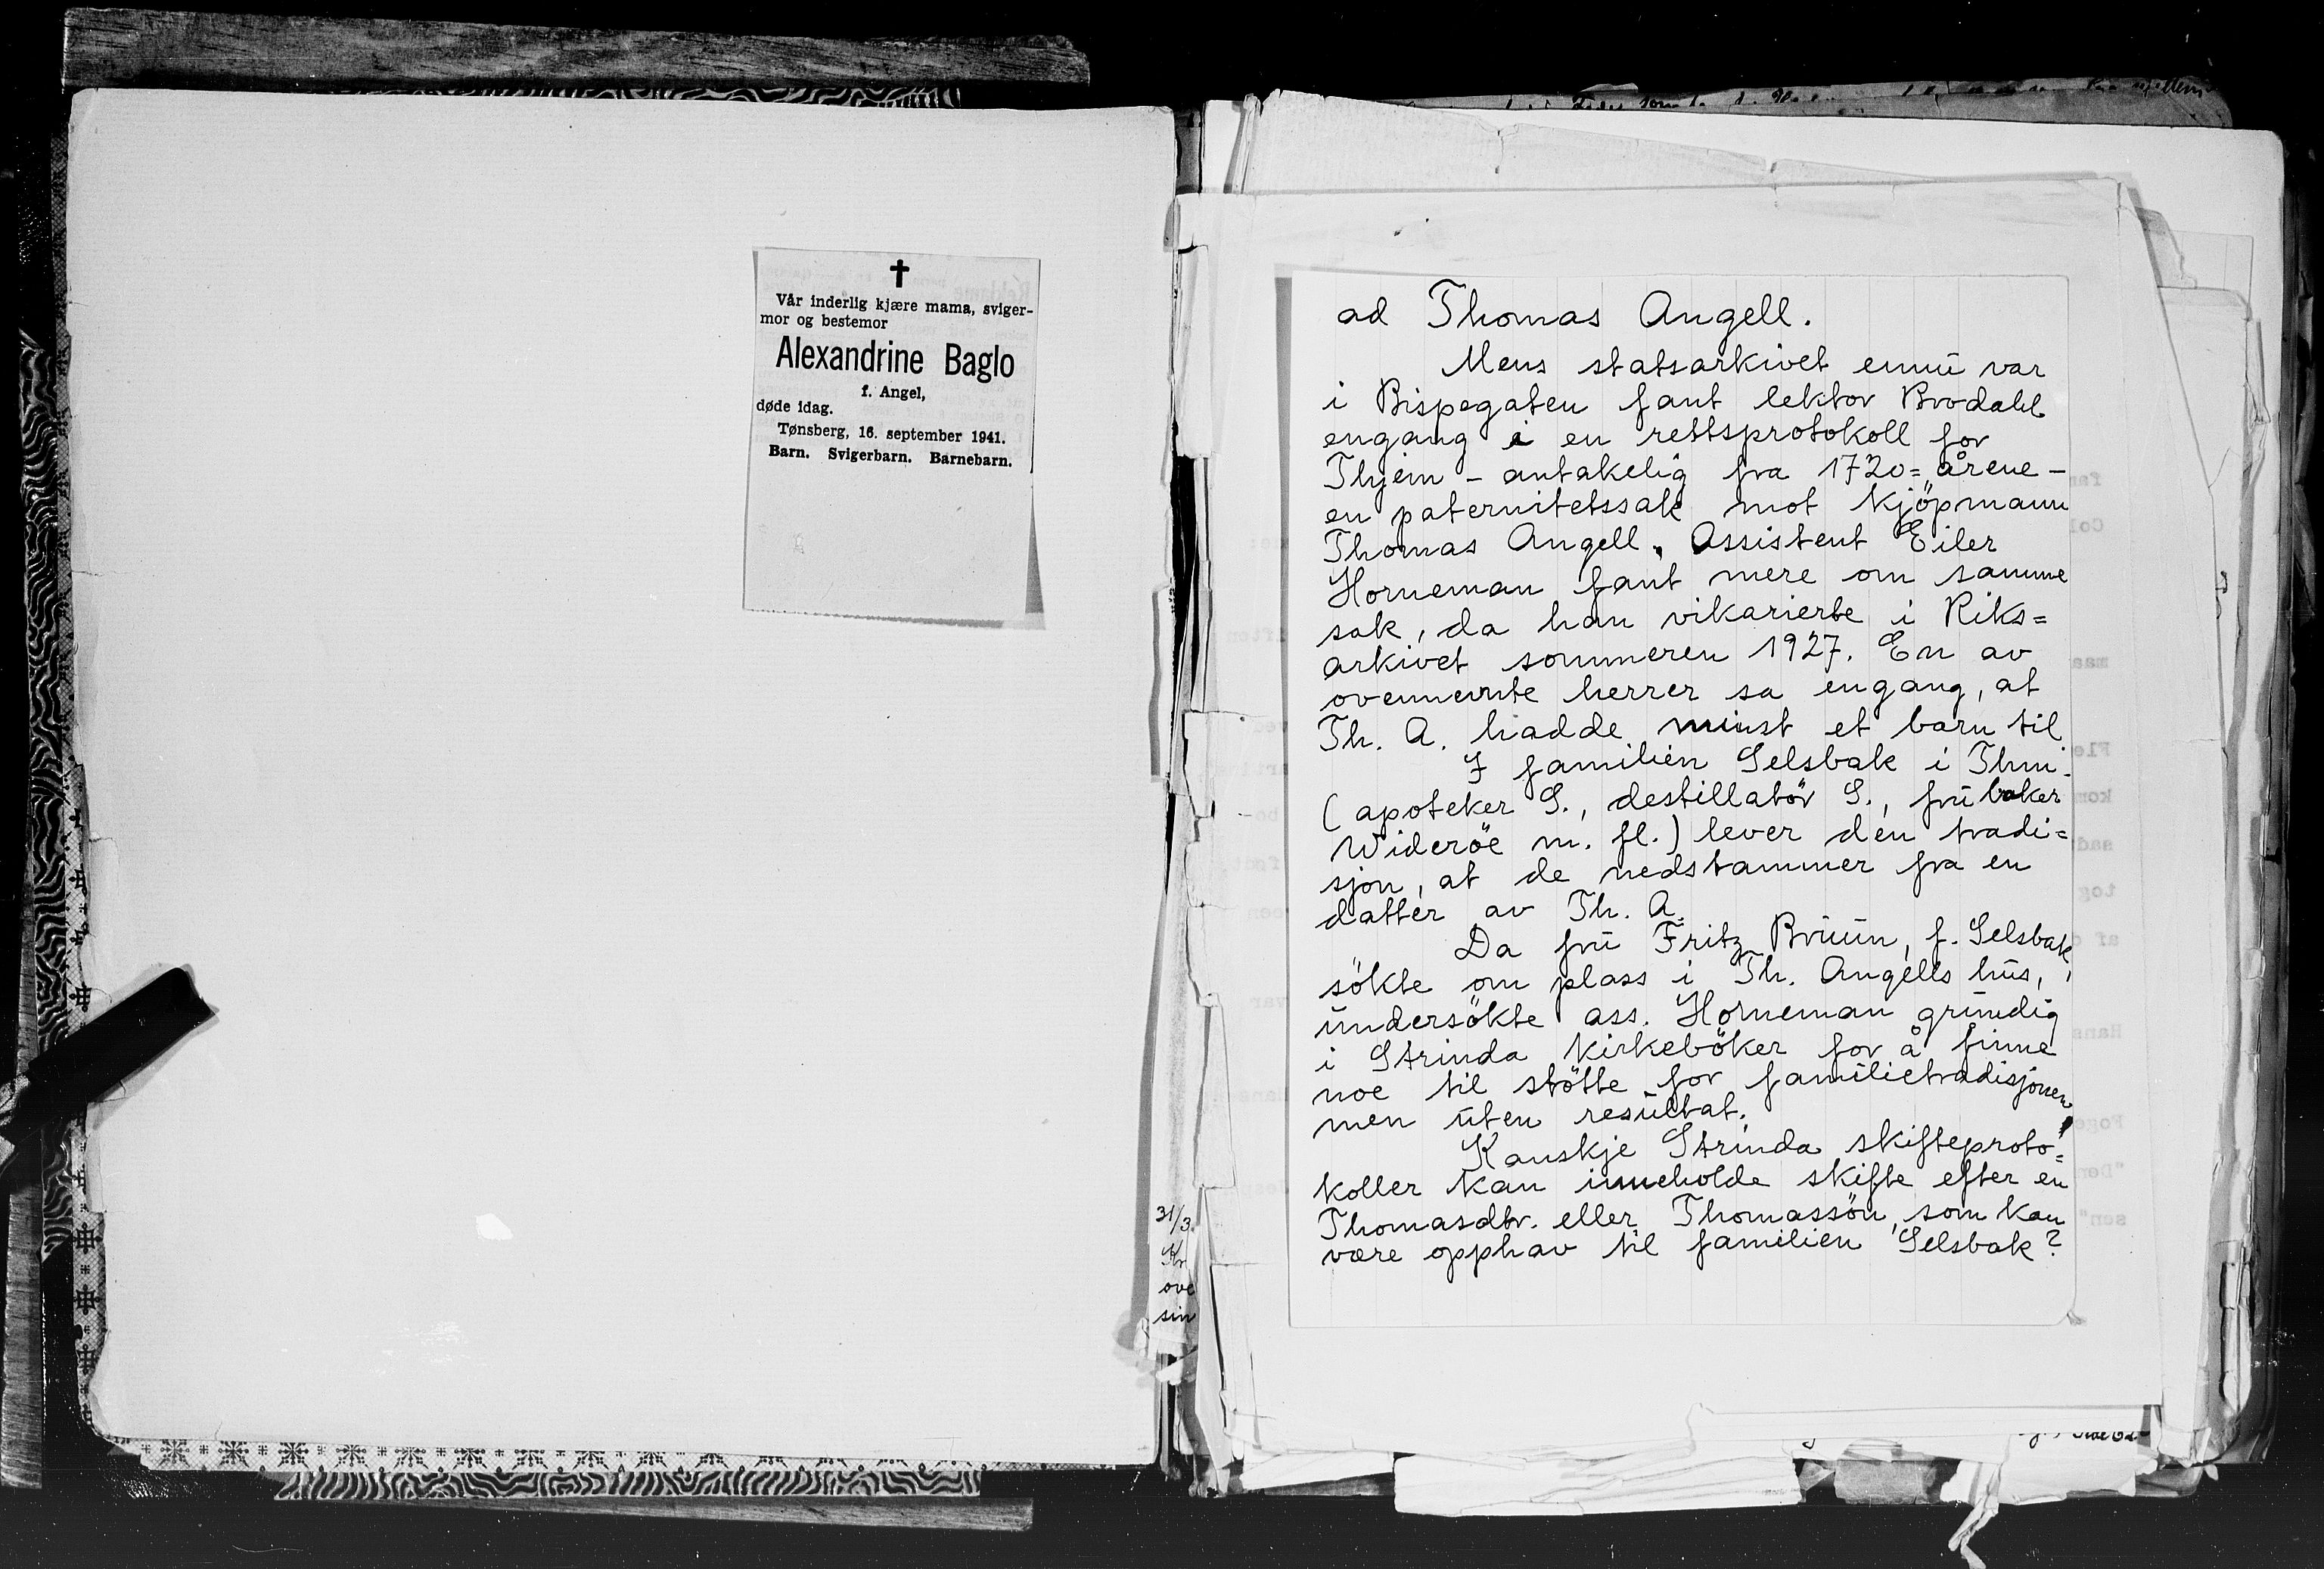 ✝
Vår inderlig kjære mama, sviger-
mor og bestemor
Alexandrine Baglo
f. Angel,
døde idag.
Tønsberg, 16. september 1941.
Barn. Svigerbarn. Barnebarn.
31/3.
Kr
ove
sin
ad Thomas Angell.
Mens statsarkivet ennu var
i Bispegaten fant lektor Brodahl
engang i en rettsprotokoll for
Thjem - antakelig fra 1720=årene -
en paternitetssak mot kjöpmann
Thomas Angell. Assistent Eiler
Horneman fant mere om samme
sak, da han vikarierte i Riks=
arkivet sommeren 1927. En av
ovennevnte herrer sa engang, at
Th. A. hadde minst et barn til.
I familien Selsbak i Thm.
(apoteker S., destillatör S., fru baker
Wideröe m. fl.) lever den tradi=
sjon, at de nedstammer fra en
datter av Th. A.
Da fru Fritz Bruun, f. Selsbak,
sökte om plass i Th. Angells hus,
undersökte ass. Horneman grundig
i Strinda kirkeböker for å finne
noe til stötte for familietradisjonen,
men uten resultat.
Kanskje Strinda skifteproto=
koller kan inneholde skifte efter en
Thomasdtr. eller Thomassön, som kan
være opphav til familien Selsbak?